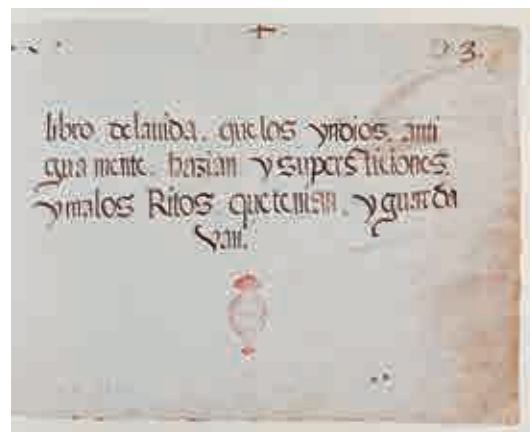 3.
libro delauida. que los yndios. anti
gua mente. hazian y supersticiones.
y malos Ritos. quetenian. y guarda
van.